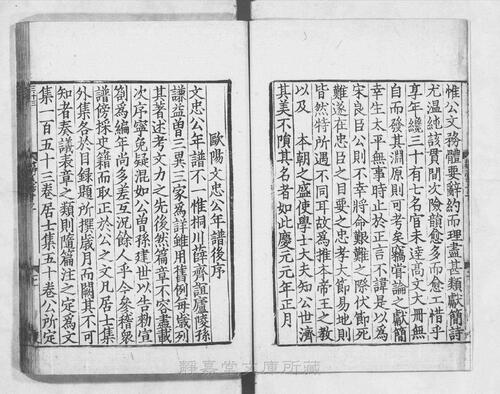 惟公文務體要辭約而理盡甚類獻簡詩
尤溫純該貫間次險韻愈多而愈工惜乎
享年纔三十有七名官未達高文大冊無
自而發其淵原則可考矣竊嘗論之獻簡
幸生太平無事時止於正言不諱是以為
宋良臣公則不幸將命艱難之際伏節死
難遂在忠臣之目要之忠孝大節易地則
皆然特所遇不同耳故為推本帝王之教
以及 本朝之盛使學士大夫知公世濟
其美不隕其名者如此慶元元年正月
歐陽文忠公年譜後序
文忠公年譜不一惟桐川薛齊誼廬陵孫
謙益曾三異三家為詳雖用舊例每歲列
其著述考文力之先後然篇章不容盡載
次序寧免疑混如公曾孫建世以告勑宣
劄為編年尚多差互況餘人乎今參稽衆
譜傍採史籍而取正於公之文凡居士集
外集各於目錄題所撰歲月而闕其不可
知者奏議表章之類則隨篇注之定為文
集一百五十三卷居士集五十卷公所定
靜嘉堂文庫所藏